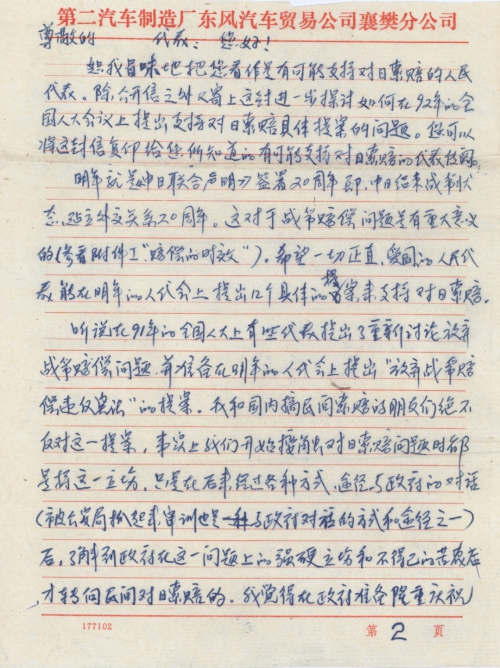 第二汽车制造厂东风汽车贸易公司襄樊分公司
尊敬的 代表：您好！
恕我冒昧地把您看作是有可能支持对日索赔的人民
代表。除公开信之外又寄上这封进一步探讨如何在92年的全
国人大会议上提出支持对日索赔具体提案的问题。您可以
将这封信复印给您所知道的有可能支持对日索赔的代表
明年就是《中日联合声明》签署20周年即，中日结束战争状
态，建立外交关系20周年。这对于战争赔偿问题是有重大意义
的（参看附件I"赔偿的时效"）。希望一切正直、爱国的人民代
表能在明年的人代会上提出12个具体的提案来支持对日索赔。
听说在91年的全国人大上有些代表提出了重新讨论放弃
战争赔偿问题，并准备在明年的人代会上提出"放弃战争赔
偿违反宪法"的提案。我和国内搞民间索赔的朋友们绝不
反对这一提案，事实上我们开始提出对日索赔问题时都
是持这一立场，只是在后来经过各种方式、途径与政府的对话
（被公安局抓起来审训也是与政府对话的方式和途径之一）
后，了解到政府在这一问题上的强硬立场和不得已的苦衷后
才转向民间对日索赔的。我觉得在政府准备隆重庆祝
177102
第 2 页